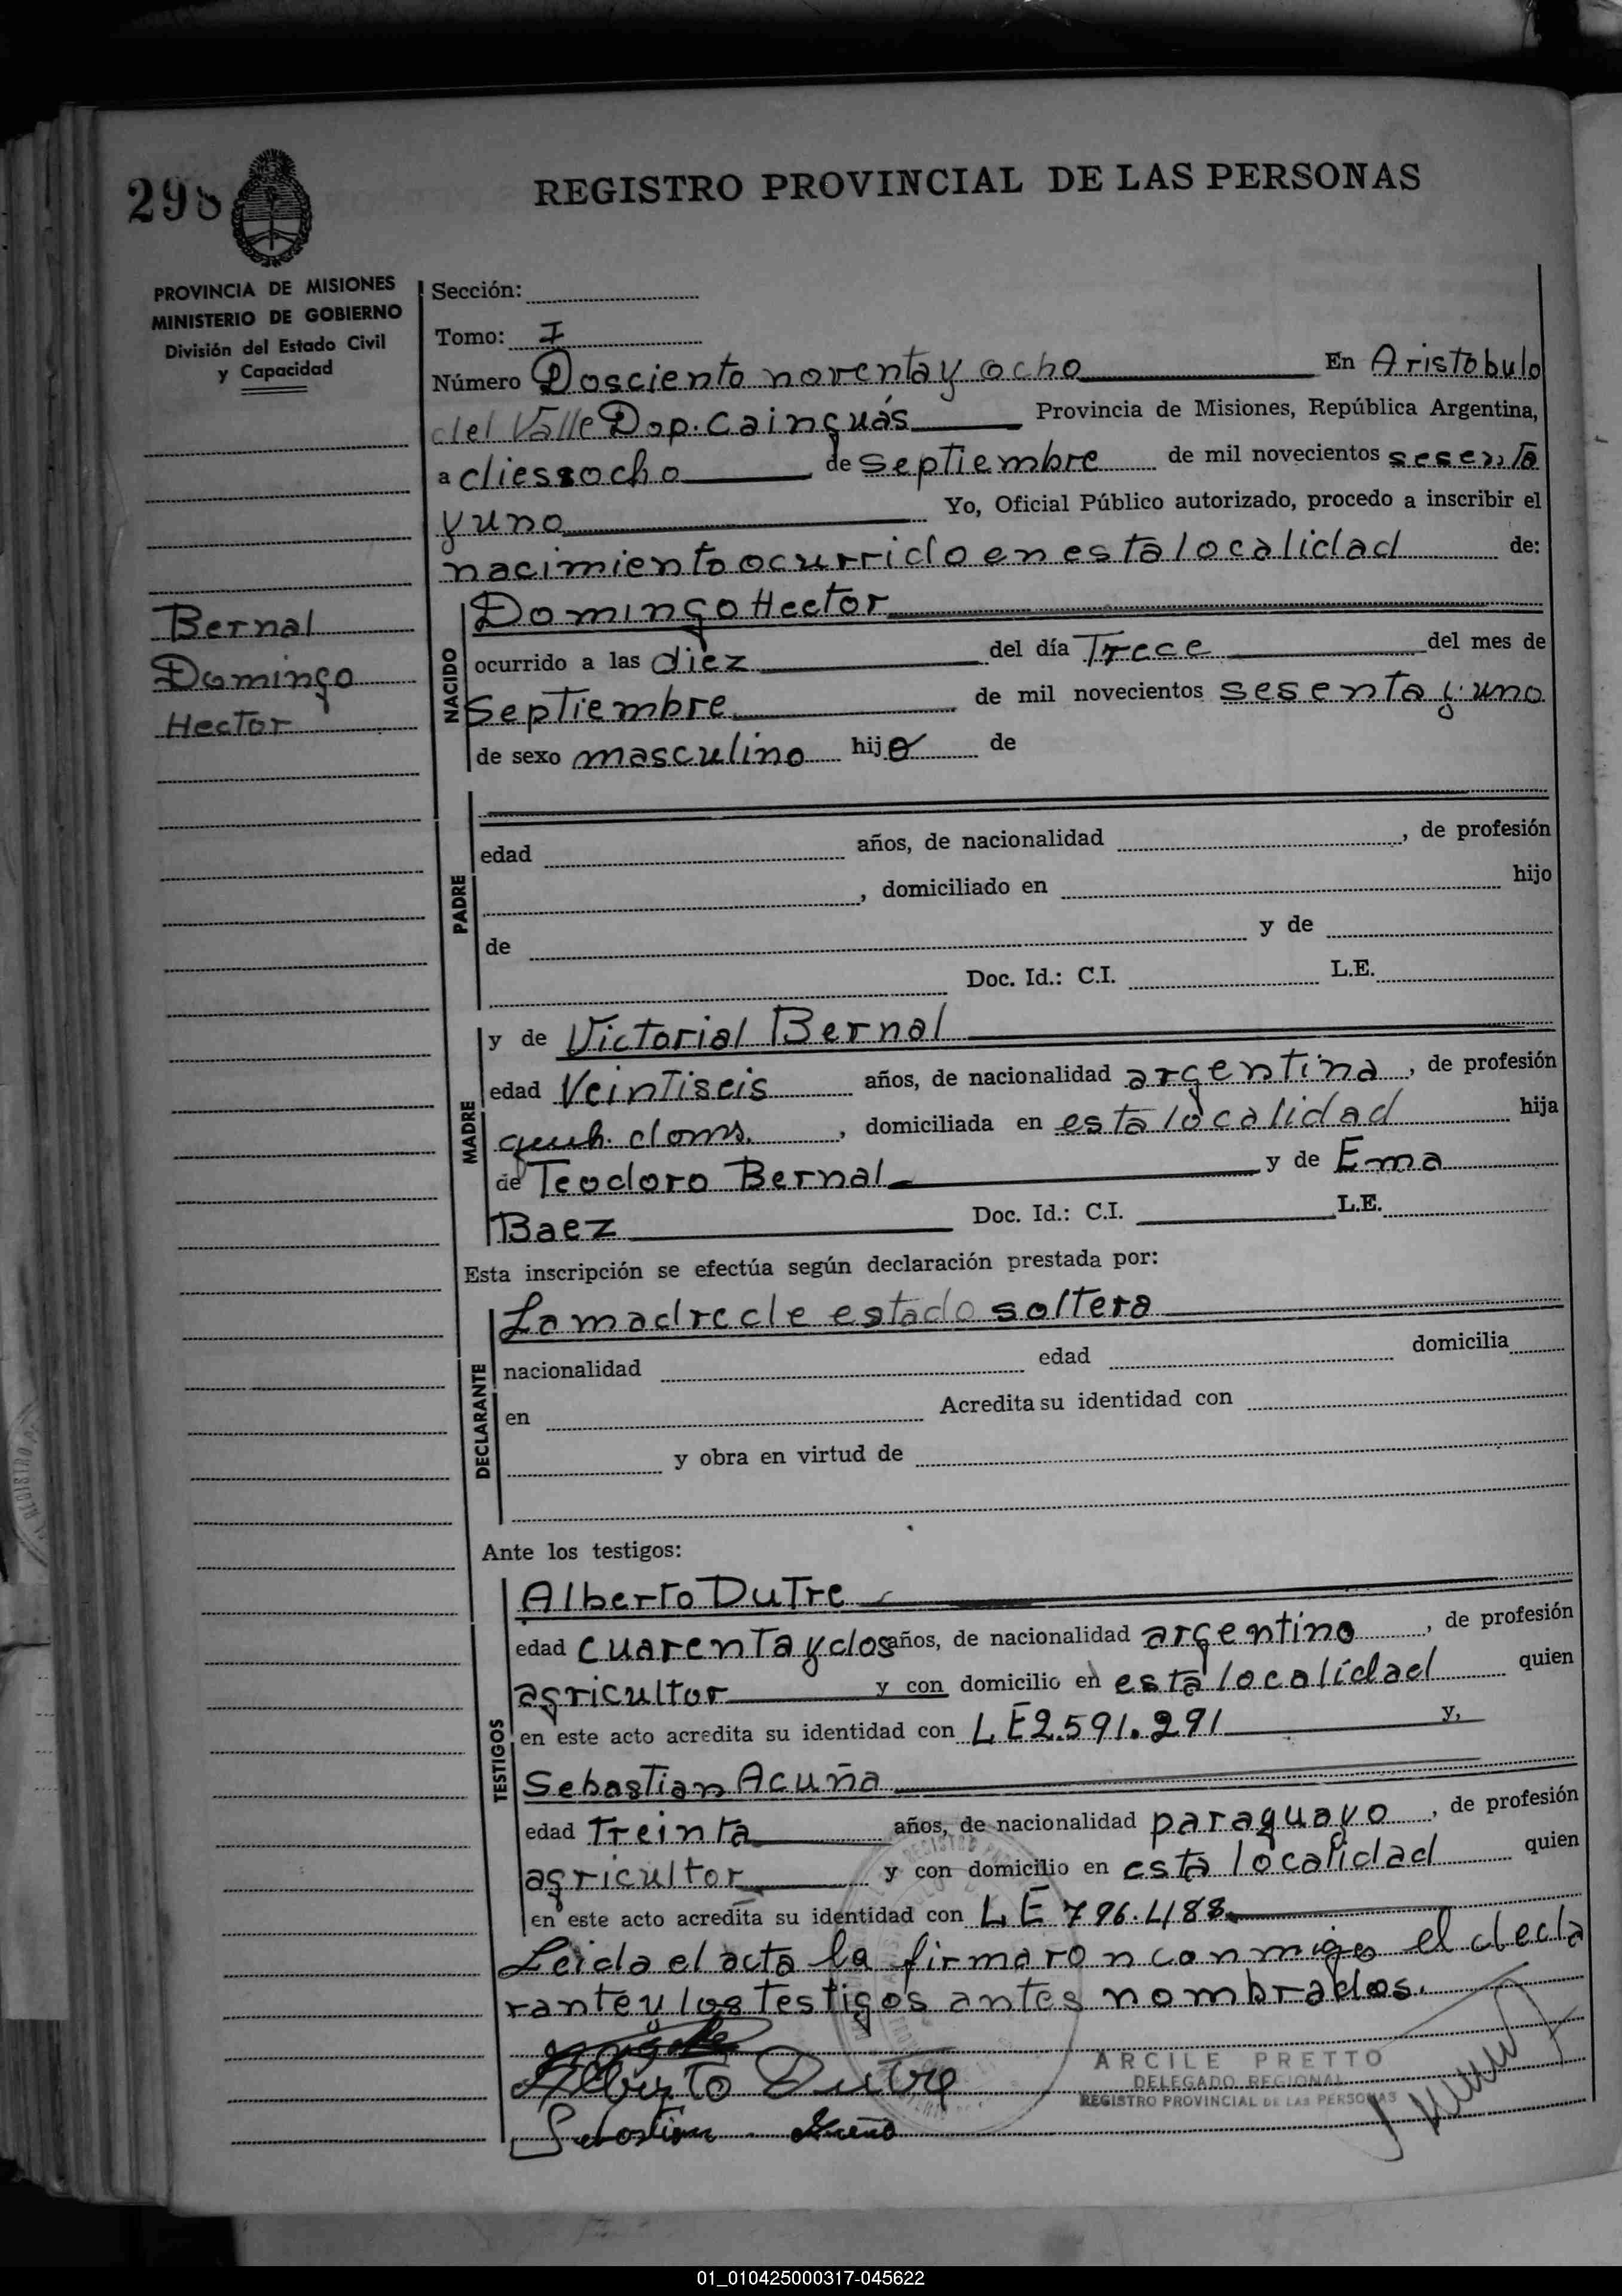 298
REGISTRO PROVINCIAL DE LAS PERSONAS
PROVINCIA DE MISIONES
MINISTERIO DE GOBIERNO
División del Estado Civil
y Capacidad
Bernal
Domingo
Hector
Sección:
Tomo: I
Número Dosciento noventa y ocho En Aristobulo
del Valle Dop. Cainguás Provincia de Misiones, República Argentina,
a diesiocho de septiembre de mil novecientos sesenta
y uno Yo, Oficial Público autorizado, procedo a inscribir el
nacimiento ocurrido en esta localidad de:
NACIDO
Domingo Hector
ocurrido a las diez del día Trece del mes de
Septiembre de mil novecientos sesenta y uno
de sexo masculino hijo de
PADRE
edad años, de nacionalidad , de profesión
, domiciliado en hijo
de y de
Doc. Id.: C.I. L.E.
MADRE
y de Victorial Bernal
edad Veintiseis años, de nacionalidad argentina, de profesión
doms. , domiciliada en esta localidad hija
de Teodoro Bernal y de Ema
Baez Doc. Id.: C.I. L.E.
Esta inscripción se efectúa según declaración prestada por:
DECLARANTE
La madre de estado soltera
nacionalidad edad domicilia
en Acredita su identidad con
y obra en virtud de
Ante los testigos:
TESTIGOS
Alberto Dutre
edad cuarenta y dos años, de nacionalidad argentino, de profesión
agricultor y con domicilio en esta localidad quien
en este acto acredita su identidad con L E 2.591.291 y,
Sebastian Acuña
edad Treinta años, de nacionalidad paraguayo, de profesión
agricultor y con domicilio en esta localidad quien
en este acto acredita su identidad con L E 796.488
Leida el acta la firmaron conmigo el decla
rante y los testigos antes nombrados.
Alberto Dutre
Sebastian Acuña
ARCILE PRETTO
DELEGADO REGIONAL
REGISTRO PROVINCIAL DE LAS PERSONAS
01_010425000317-045622